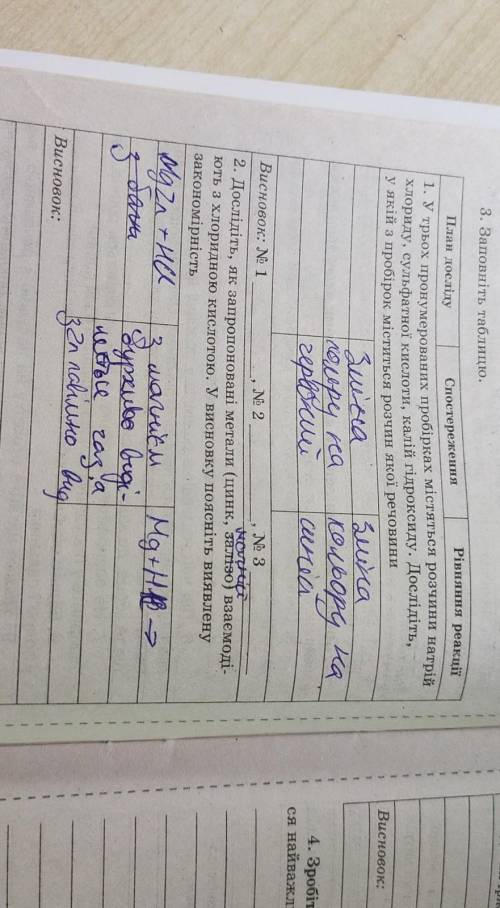 3. Заповніть таблицю.
План досліду Спостереження Рівняння реакції
1. У трьох пронумерованих пробірках містяться розчини натрій
хлориду, сульфатної кислоти, калій гідроксиду. Дослідіть,
у якій з пробірок міститься розчин якої речовини
Зміна Зміна
кольору на кольору на
червоний синій
Висновок: № 1 , № 2 , № 3
магній
2. Дослідіть, як запропоновані метали (цинк, залізо) взаємоді-
ють з хлоридною кислотою. У висновку поясніть виявлену
закономірність
MgZn + HCl З магнієм Mg + HCl →
бурхливо виді-
газ, а
з Zn повільно вид
Висновок:
Висновок:
4. Зробіт
ся найважл